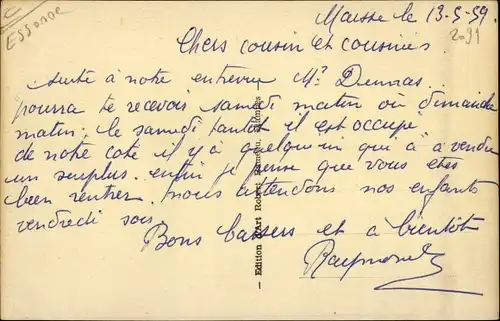 Essonne
Maisse le 13-5-59
2091
Chers cousin et cousines
suite à notre entrevue Mr
pourra te recevoir samedi matin où dimanche
matin. le samedi tantot il est occupé
de notre coté il y à quelqu'un qui à à vendre
un surplus. enfin je pense que vous etes
been rentrer. nous attendons nos enfants
vendredi soir.
Bons baisers et à bientôt
Raymond
— Edition d'Art Robert